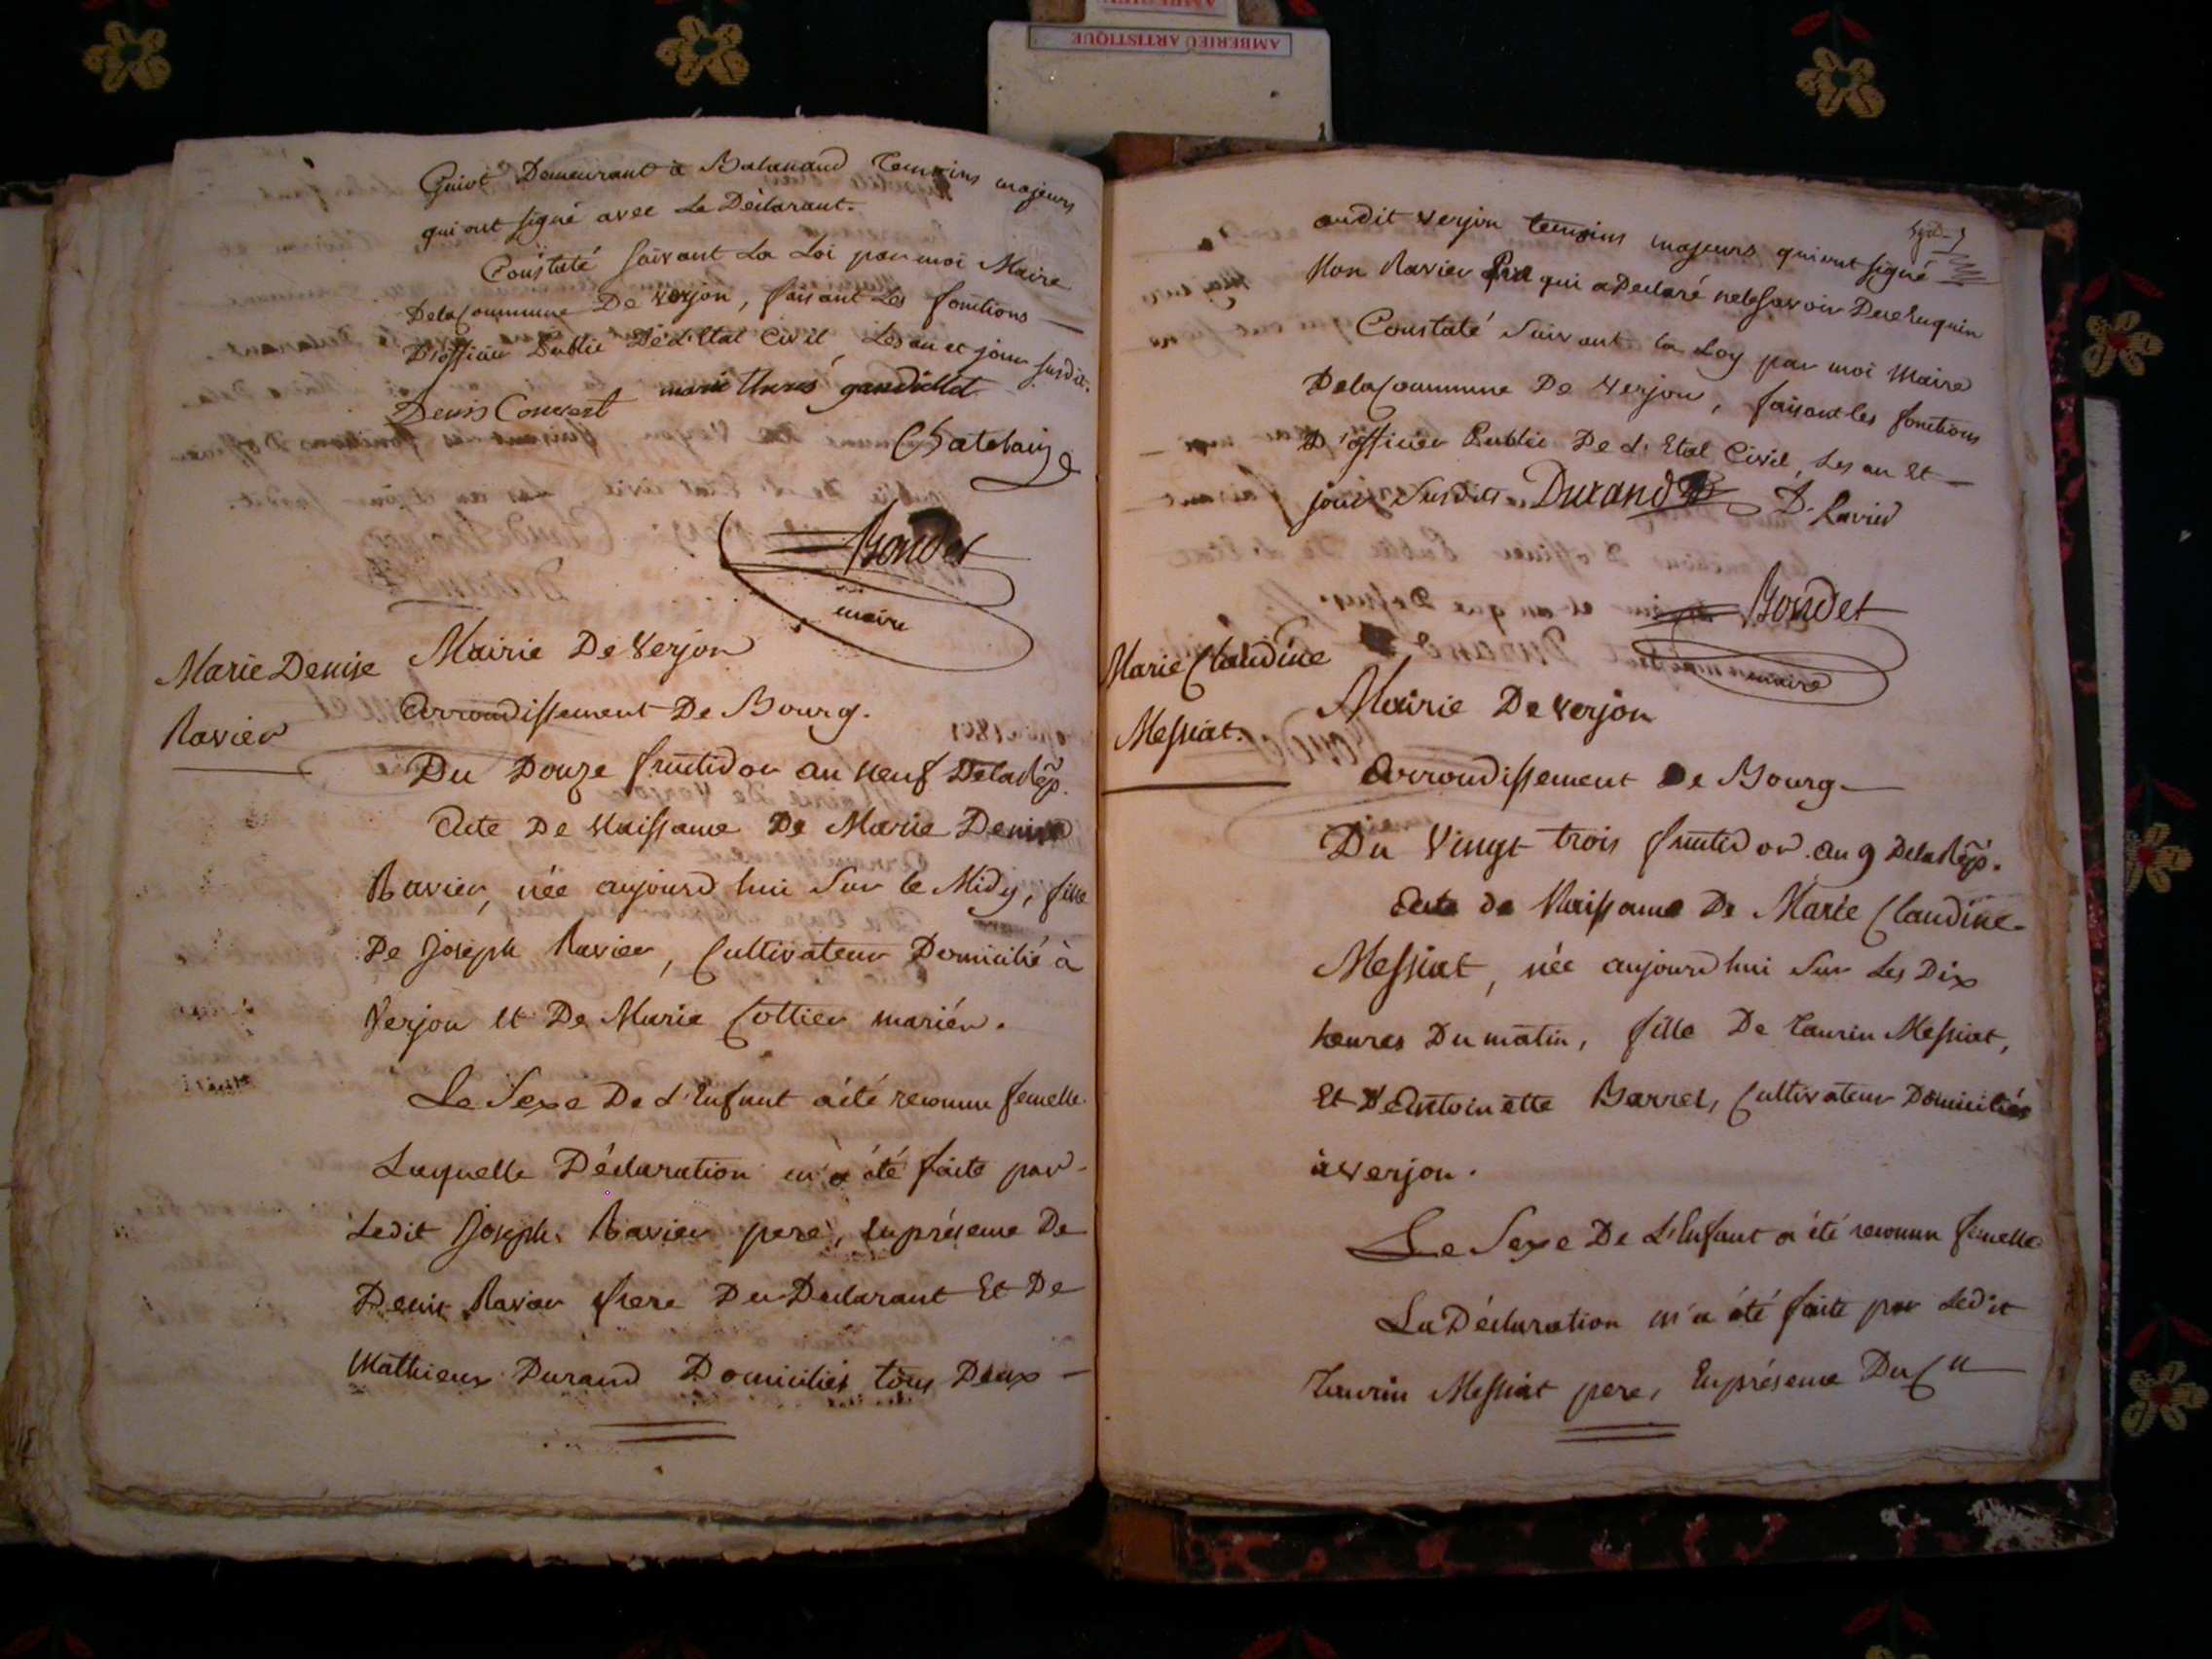 AMBERIEU ARTISTIQUE
Guiot Demeurant à Balanand Temoins majeurs
qui ont signé avec Le Déclarant.
Constaté suivant La Loi par moi Maire
De la Commune De verjon, faisant Les fonctions
D'officier Public De L'Etat Civil Les an et jour susdits.
Denis Convert marie therese gandillet
Chatelain
Bondet
maire
Marie Denise
Ravier
Mairie De Verjon
Arrondissement De Bourg.
Du Douze fructidor an neuf De la Rép.
Acte De Naissance De Marie Denise
Ravier, née aujourd'hui sur le Midy, fille
De Joseph Ravier, Cultivateur Domicilié à
Verjon et De Marie Cottier mariés.
Le Sexe De L'Enfant a été reconnu femelle.
Laquelle Déclaration m'a été faite par
Ledit Joseph Ravier pere, en présence De
Denis Ravier frere Du Declarant Et De
Mathieux Durand Domiciliés tous Deux
audit verjon temoins majeurs qui ont signé
Non Ravier qui a Declaré ne le savoir De ce Enquis
Constaté Suivant la Loy par moi Maire
De la Commune De Verjon, faisant les fonctions
D'officier Public De L'Etat Civil, Les an Et
jour Susdits Durand D. Ravier
Bondet
maire
Marie Claudine
Messiat.
Mairie De Verjon
Arrondissement De Bourg
Du Vingt trois fructidor an 9 De la Rép.
Acte de Naissance De Marie Claudine
Messiat, née aujourd'hui sur Les Dix
heures Du matin, fille De Taurin Messiat,
Et D'Antoinette Barret, Cultivateur Domiciliés
à Verjon.
Le Sexe De L'Enfant a été reconnu femelle
La Déclaration m'a été faite par Ledit
Taurin Messiat pere, En présence Du Cen